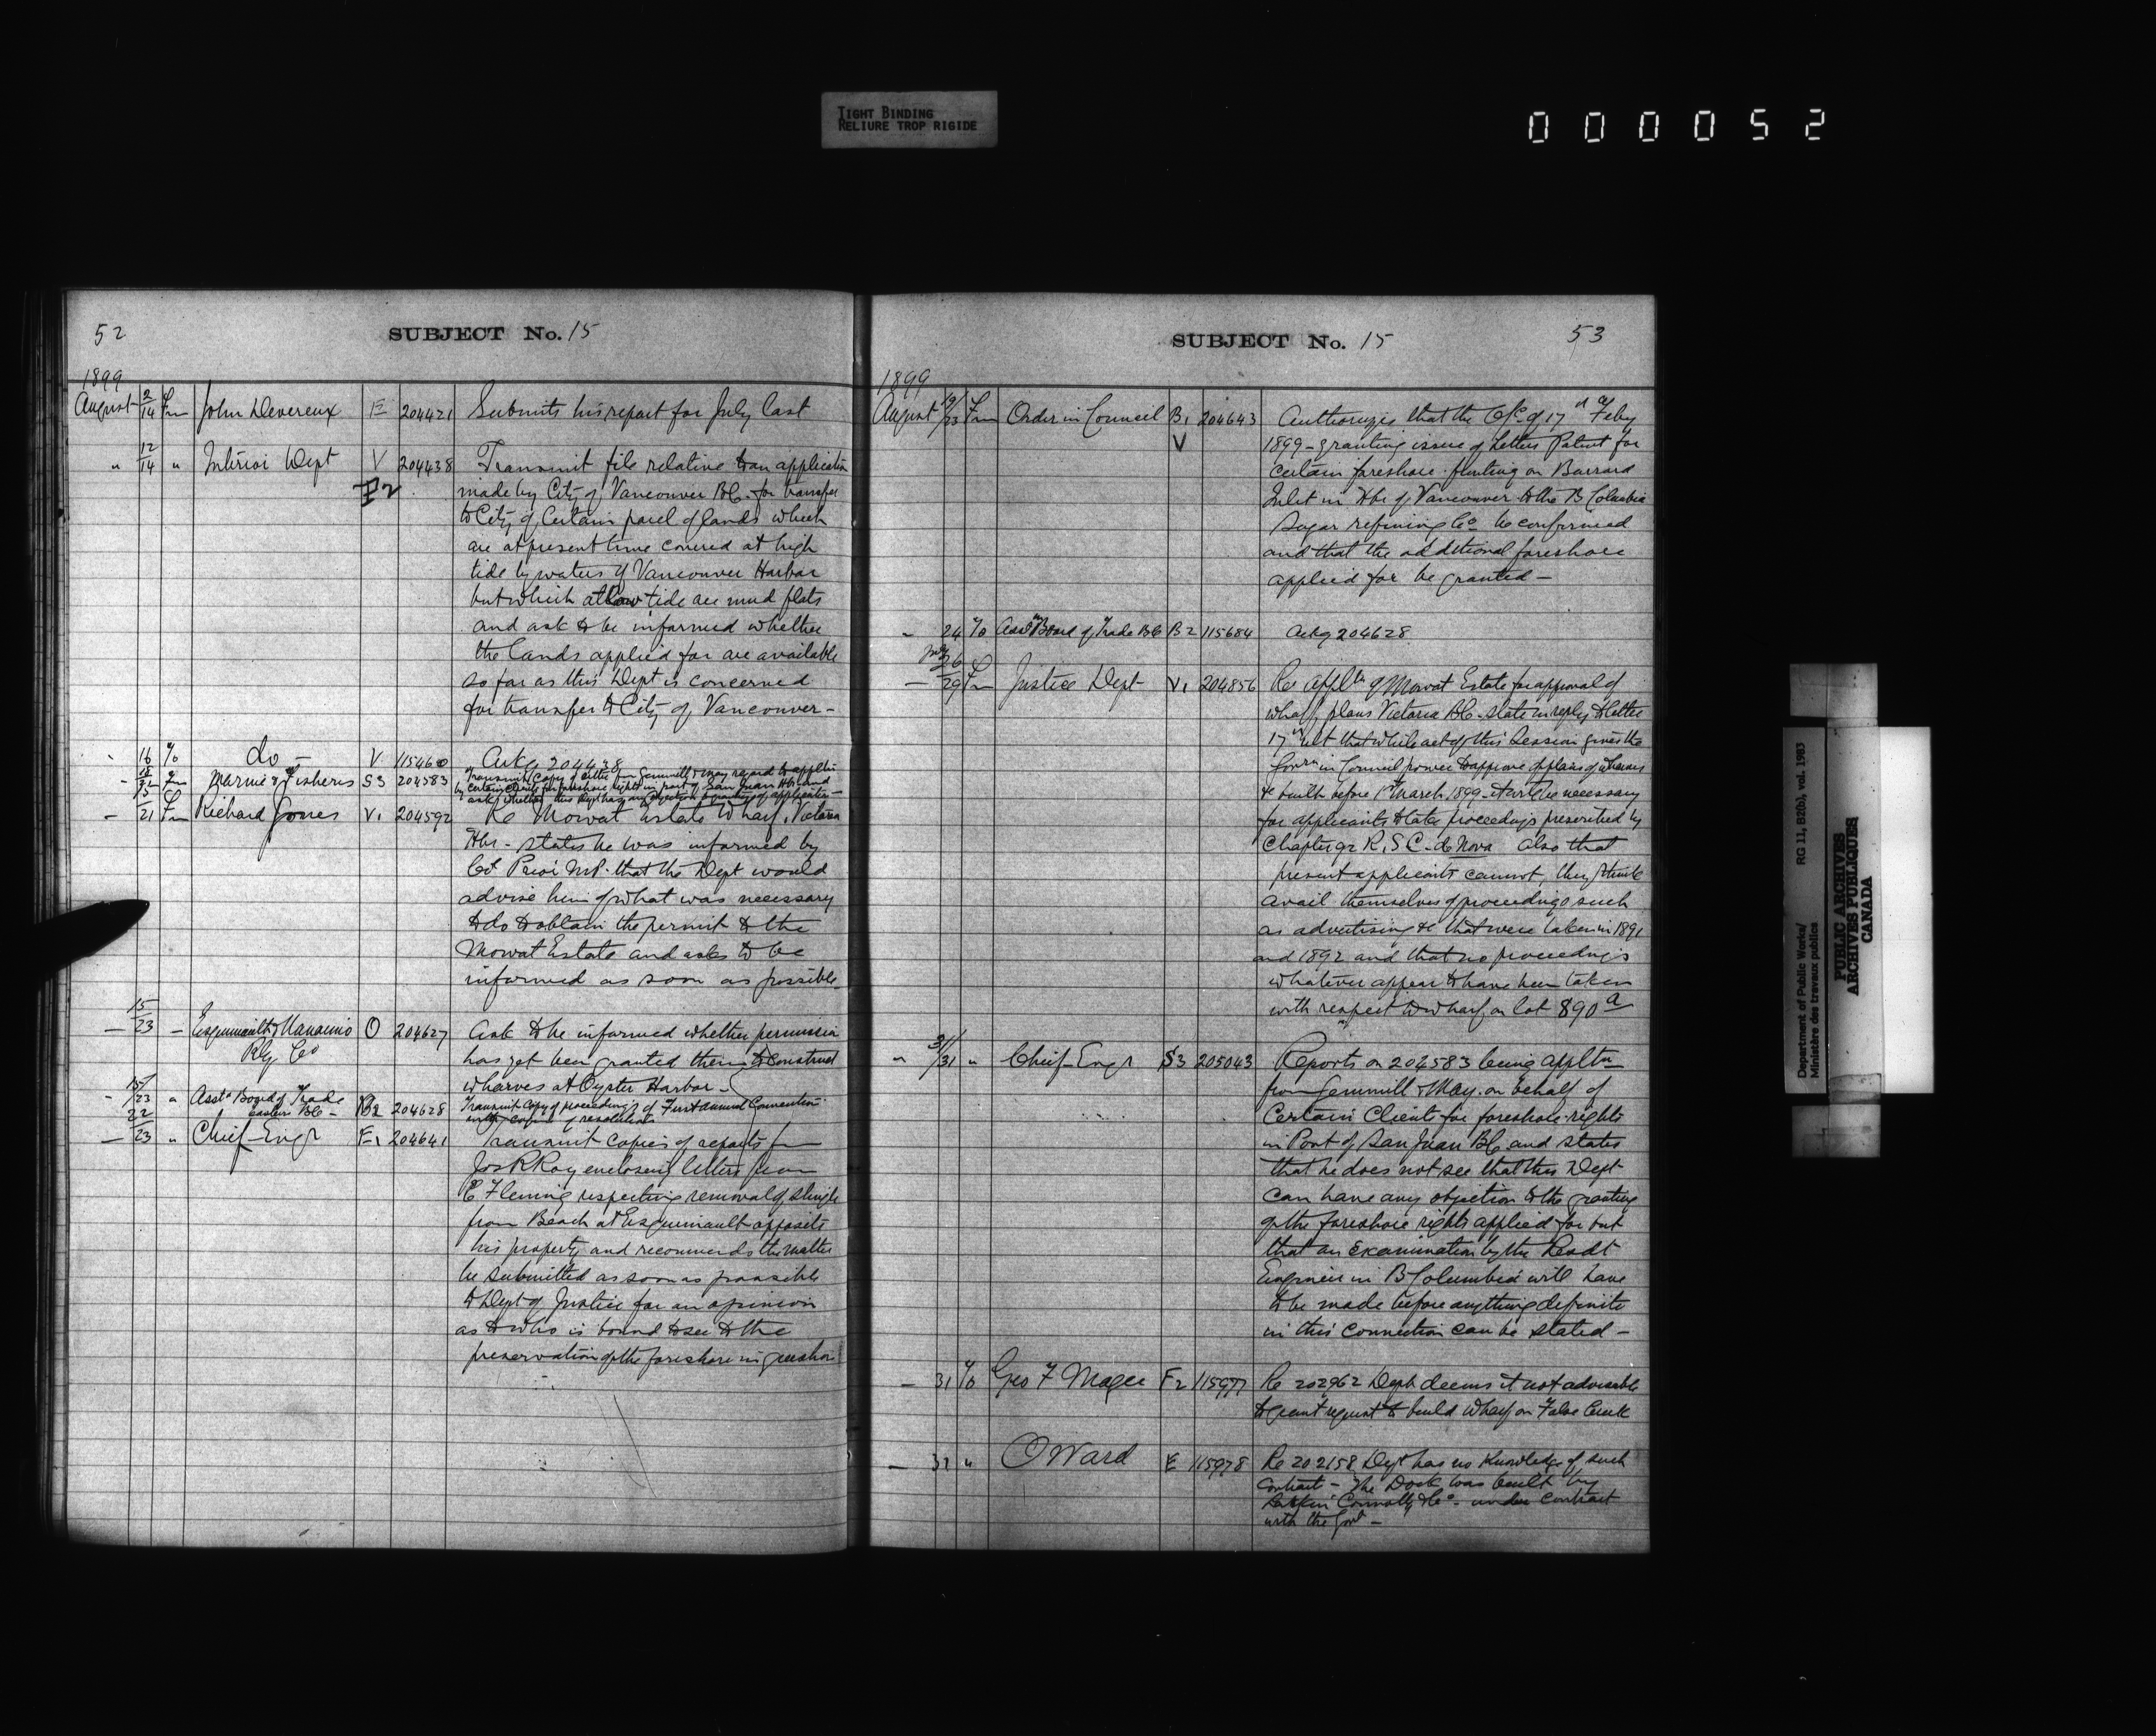 TIGHT BINDING
RELIURE TROP RIGIDE
000052
52
SUBJECT No. 15
1899
August 2/14 Fm John Devereux E 204421 Submits his report for July last
" 12/14 " Interior Dept V 204438 Transmit file relative to an application
F2 made by City of Vancouver B.C. for transfer
to City of certain parcel of lands which
are at present time covered at high
tide by waters of Vancouver Harbor
but which at low tide are mud flats
and ask to be informed whether
the lands applied for are available
so far as this Dept is concerned
for transfer to City of Vancouver -
" 16 To do - V 115460 Ackg 204438
Marine & Fisheries S3 204583 Transmit copy of letter from Gemmill & May regard to appltn
by certain clients for foreshore rights in port of San Juan Hbr and
ask whether this Dept has any objection to granting of application -
- 21 Fm Richard Jones V1 204592 Re Mowat Estate Wharf, Victoria
Hbr - states he was informed by
Col Prior M.P. that the Dept would
advise him of what was necessary
to do to obtain the permit to the
Mowat Estate and asks to be
informed as soon as possible
15/23 - Esquimault & Nanaimo O 204627 Ask to be informed whether permission
Rly Co has yet been granted them to construct
wharves at Oyster Harbor -
- 15/23 " Asstd Board of Trade
eastern B.C. - B2 204628 Transmit copy of proceedings of First annual Convention
with copies of resolutions
- 22/23 " Chief Engr F1 204641 Transmit copies of reports fm
Jos R Roy enclosing letters from
E Fleming respecting removal of shingle
from Beach at Esquimault opposite
his property and recommends the matter
be submitted as soon as possible
to Dept of Justice for an opinion
as to who is bound to see to the
preservation of the foreshore in question
SUBJECT No. 15
53
1899
August 19/23 Fm Order in Council B1 204643 Authorizes that the O/C of 17th Feby
V 1899 - granting issue of Letters Patent for
certain foreshore fronting on Burrard
Inlet in Hbr of Vancouver to the B Columbia
Sugar refining Co be confirmed
and that the additional foreshore
applied for be granted -
- 24 To Asstd Board of Trade B.C. B2 115684 Ackg 204628
- 26/29 Fm Justice Dept V1 204856 Re appltn of Mowat Estate for approval of
wharf plans Victoria B.C. state in reply to letter
17 ult that while act of this Session gives the
Govr in Council power to approve of plans of wharves
&c built before 1st March 1899 - it will be necessary
for applicants to take proceedings prescribed by
Chapter 92 R.S.C. de Novo also that
present applicants cannot, they think
avail themselves of proceedings such
as advertising &c that were taken in 1891
and 1892 and that no proceedings
whatever appear to have been taken
with respect to wharf on lot 890 a
" 31/31 " Chief Engr S3 205043 Reports on 204583 being appltn
from Gemmill & May on behalf of
certain Clients for foreshore rights
in Port of San Juan B.C. and states
that he does not see that this Dept
can have any objection to the granting
of the foreshore rights applied for but
that an examination by the Resdt
Engineer in B Columbia will have
to be made before anything definite
in this connection can be stated -
- 31 To Geo F Magee F2 115977 Re 202962 Dept deems it not advisable
to grant request to build wharf on False Creek
- 31 " O Ward E 115978 Re 202158 Dept has no knowledge of such
contract - The Dock was built by
Larkin Connolly & Co - under contract
with the Govt -
Department of Public Works/
Ministère des travaux publics
RG 11, B2(b), vol. 1983
PUBLIC ARCHIVES
ARCHIVES PUBLIQUES
CANADA